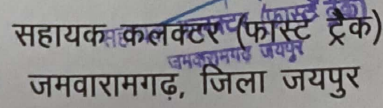 सहायक कलक्टर (फास्ट ट्रैक)
जमवारामगढ़, जिला जयपुर